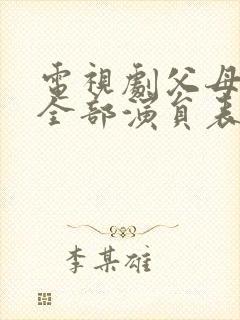 電視劇父母
全部演員表
李某雄